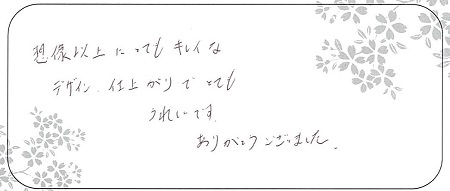 想像以上にとてもキレイな
デザイン、仕上がりでとても
うれしいです。
ありがとうございました。